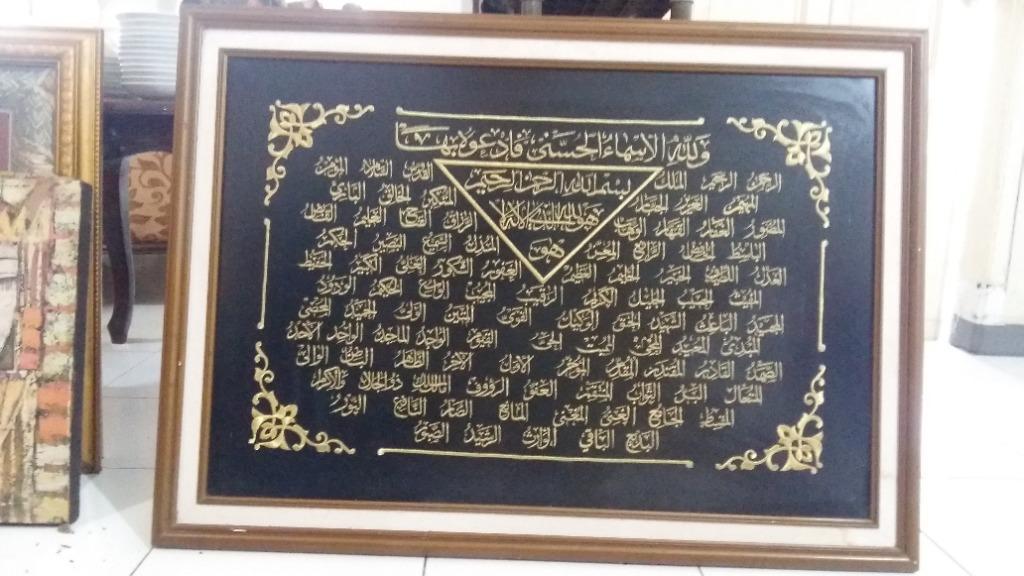 وَلِلّٰهِ الاَسْمَاءُ الحُسْنٰى فَادْعُوهُ بِهَا
بسم الله الرحمن الرحيم
هو الله الذي لا اله الا
هو
الرحمن الرحيم الملك القدس السلام المؤمن
المهيمن العزيز الجبار المتكبر الخالق الباري
المصور الغفار القهار الوهاب الرزاق الفتاح العليم القابض
الباسط الخافض الرافع المعز المذل السميع البصير الحكم
العدل اللطيف الخبير الحليم العظيم الغفور الشكور العلي الكبير الحفيظ
المقيت الحسيب الجليل الكريم الرقيب المجيب الواسع الحكيم الودود
المجيد الباعث الشهيد الحق الوكيل القوي المتين الولي الحميد المحصي
المبدئ المعيد المحي المميت الحي القيوم الواجد الماجد الواحد الاحد
الصمد القادر المقتدر المقدم المؤخر الاول الاخر الظاهر الباطن الوالي
المتعال البر التواب المنتقم العفو الرؤوف مالك الملك ذوالجلال والاكرام
المقسط الجامع الغني المغني المانع الضار النافع النور
البديع الباقي الوارث الرشيد الصبور